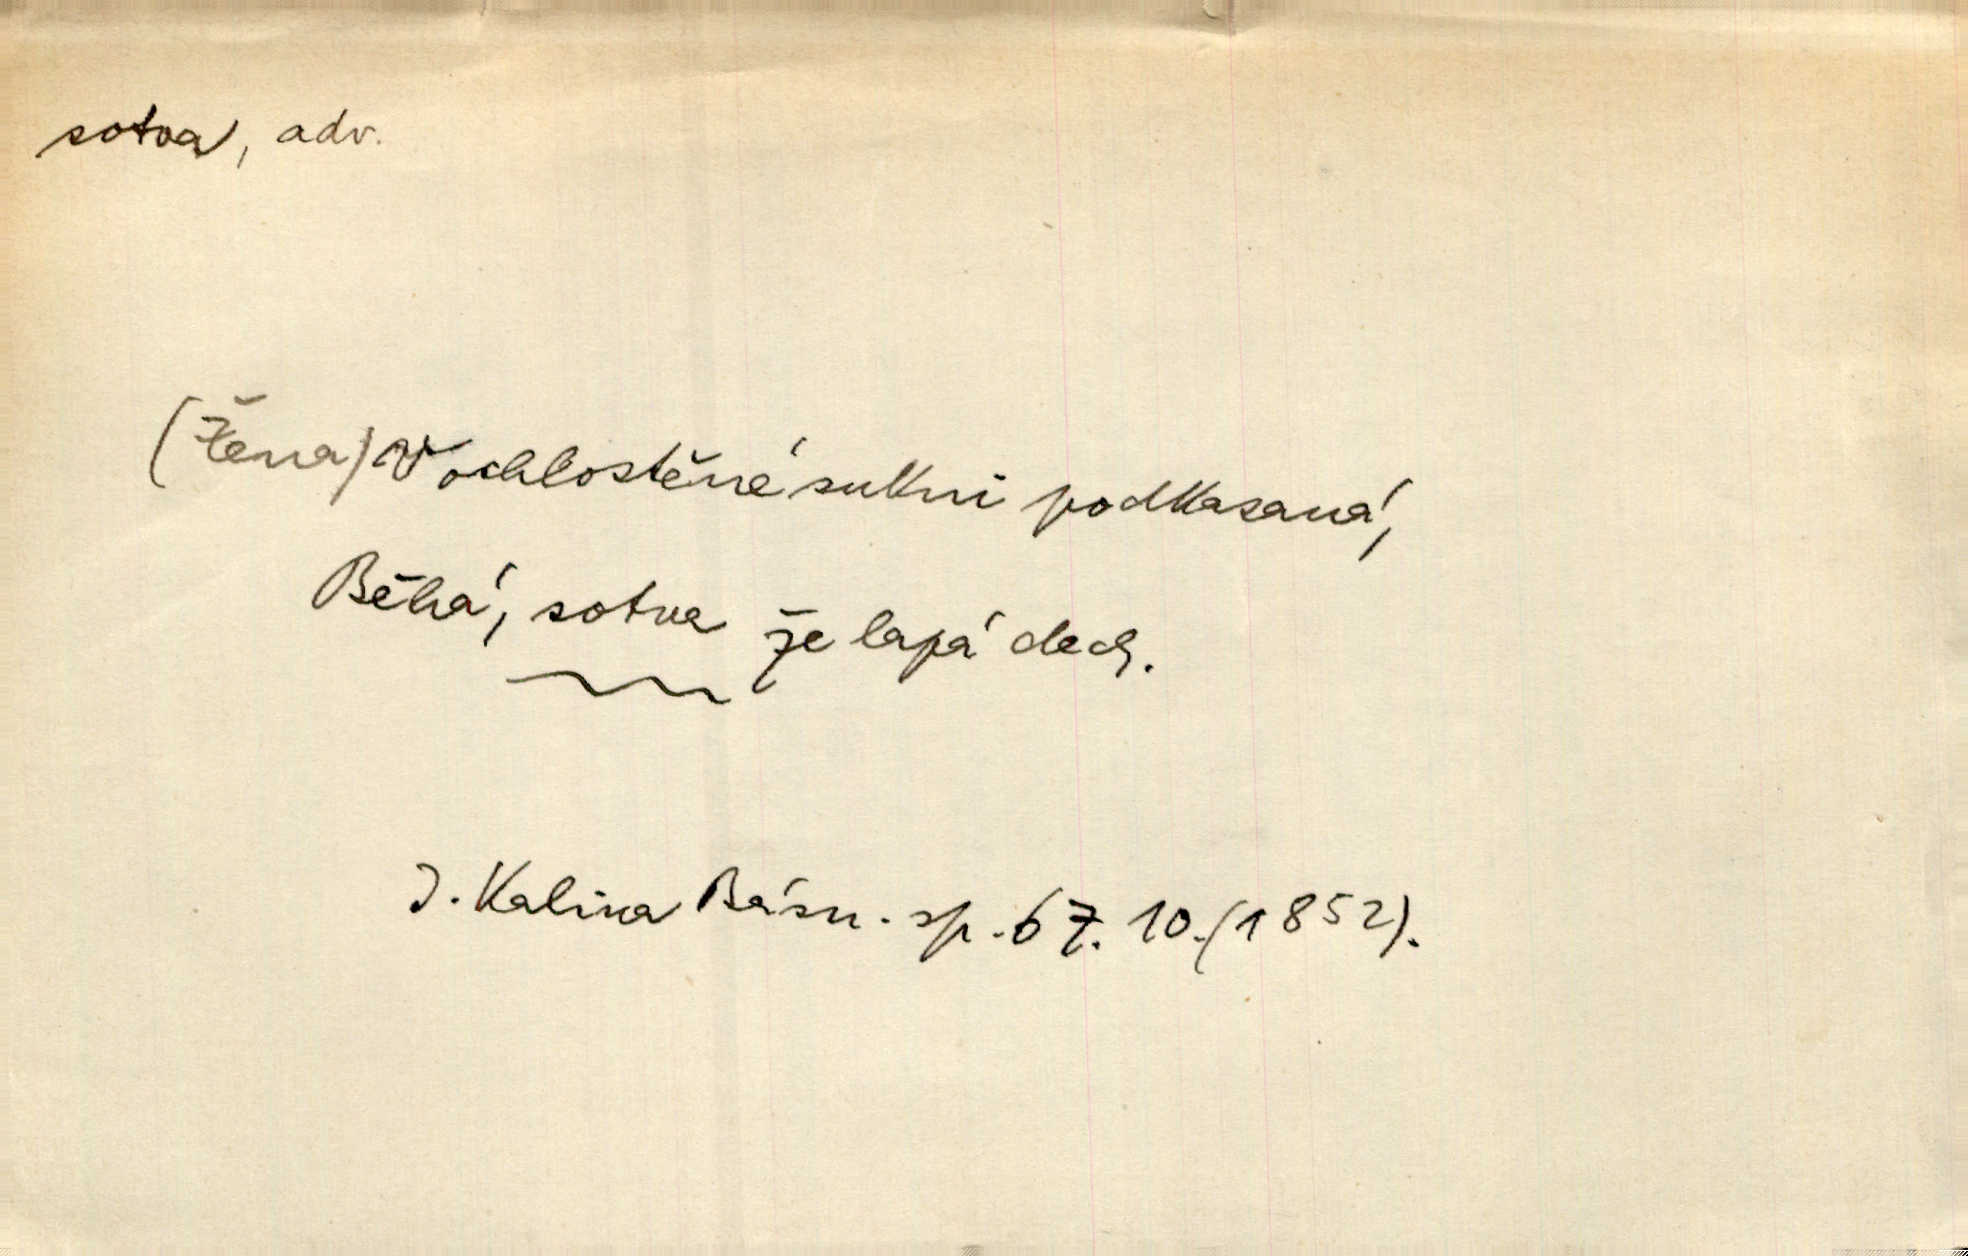 sotva, adv.
(Žena) V ochlostěné sukni podkasaná,
Běhá, sotva že lapá dech.
J. Kalina Básn. sp. 67. 10. (1852).